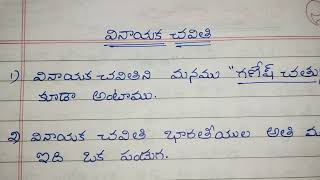 వినాయక చవితి
1) వినాయక చవితిని మనము "గణేష్ చతు
కూడా అంటాము.
2) వినాయక చవితి భారతీయుల అతి
ఇది ఒక పండుగ.